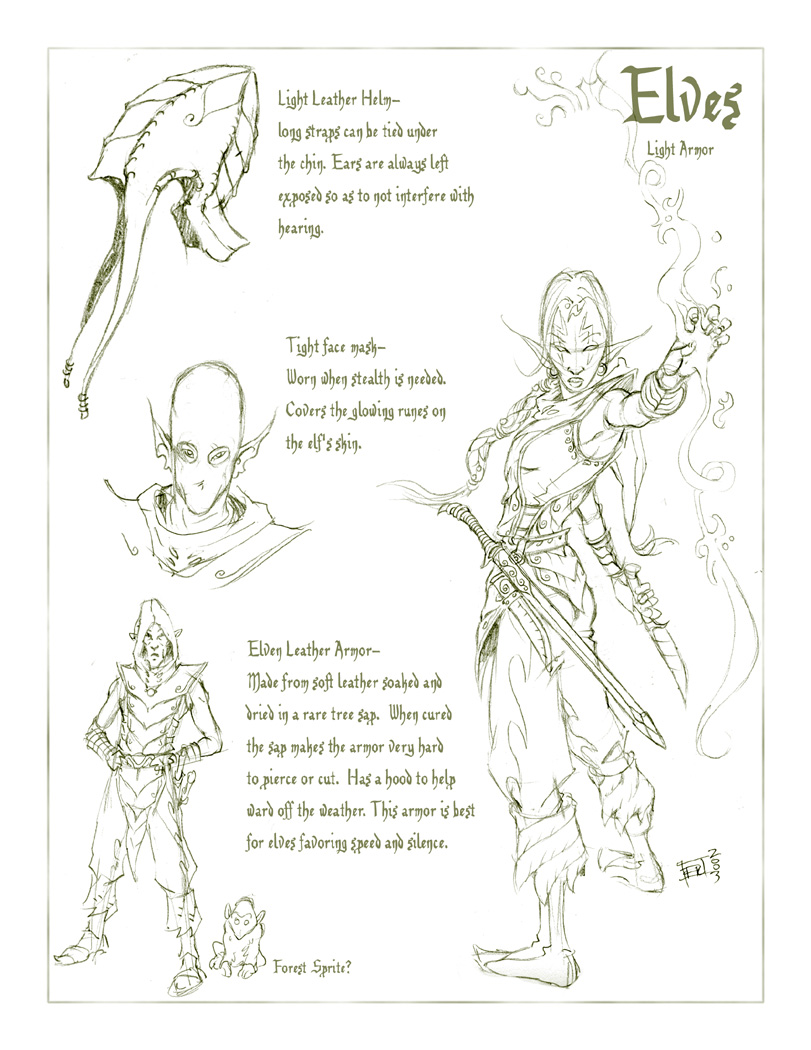 Elves
Light Armor
Light Leather Helm–
long straps can be tied under
the chin. Ears are always left
exposed so as to not interfere with
hearing.
Tight face mask–
Worn when stealth is needed.
Covers the glowing runes on
the elf's skin.
Elven Leather Armor–
Made from soft leather soaked and
dried in a rare tree sap. When cured
the sap makes the armor very hard
to pierce or cut. Has a hood to help
ward off the weather. This armor is best
for elves favoring speed and silence.
Forest Sprite?
2003